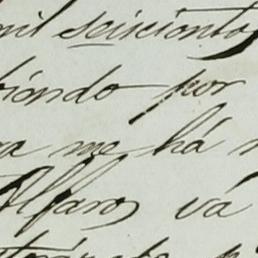 mil seiscientos
biendo por
ra me há
Alfaro, vá